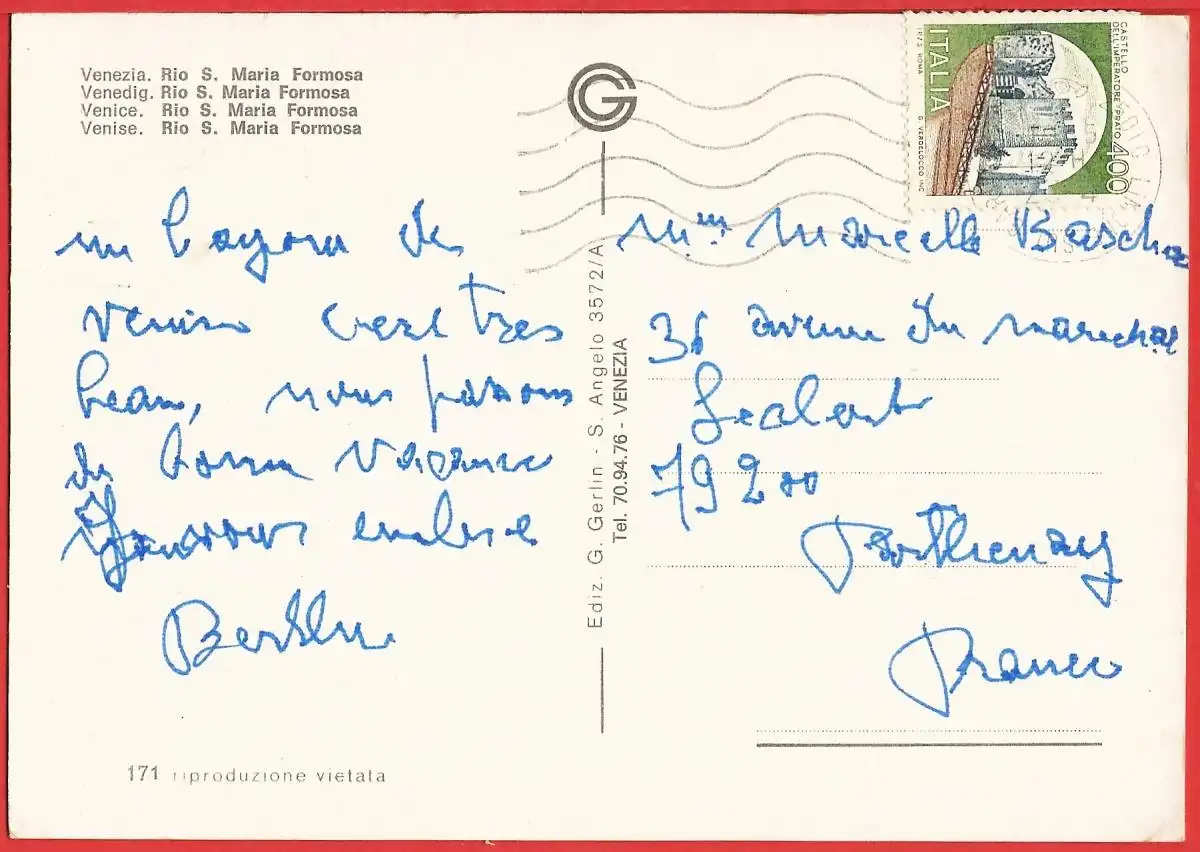 Venezia. Rio S. Maria Formosa
Venedig. Rio S. Maria Formosa
Venice. Rio S. Maria Formosa
Venise. Rio S. Maria Formosa
de
venise c'est tres
beau, nous passons
de bonne vacance
Berthe
171 riproduzione vietata
G
Ediz. G. Gerlin - S. Angelo 3572/A
Tel. 70.94.76 - VENEZIA
ITALIA
CASTELLO
DELL'IMPERATORE PRATO
400
I.P.Z.S. ROMA
G. VERDELOCCO INC.
Mme Marcelle
36 avenue du marechal
79200
Parthenay
France